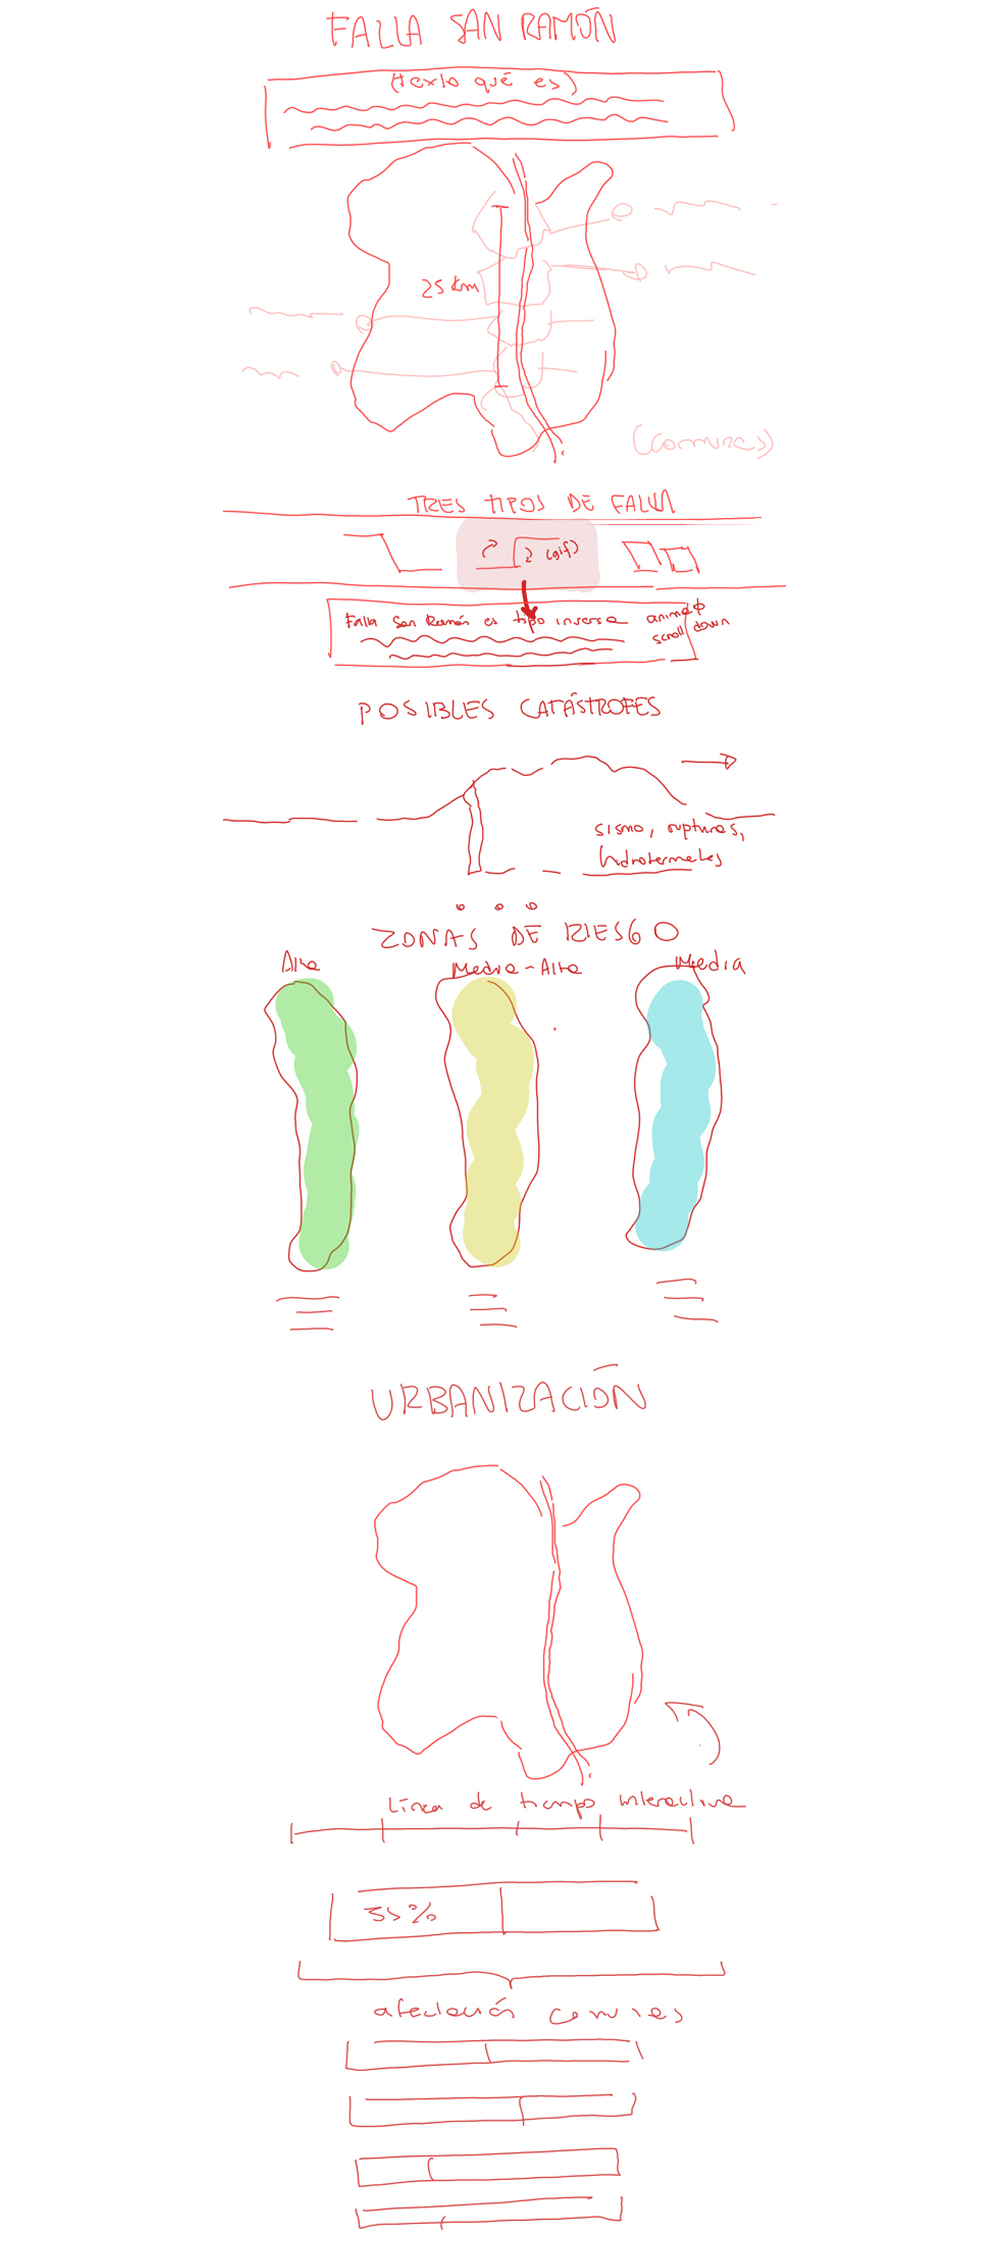 FALLA SAN RAMÓN
(texto qué es)
25 km
(comunas)
TRES TIPOS DE FALLA
(gif)
Falla San Ramón es tipo inversa
scroll down
POSIBLES CATÁSTROFES
sismo, rupturas,
hidrotermales
ZONAS DE RIESGO
Alta
Media-Alta
Media
URBANIZACIÓN
Línea de tiempo interactiva
35%
afectación comunas